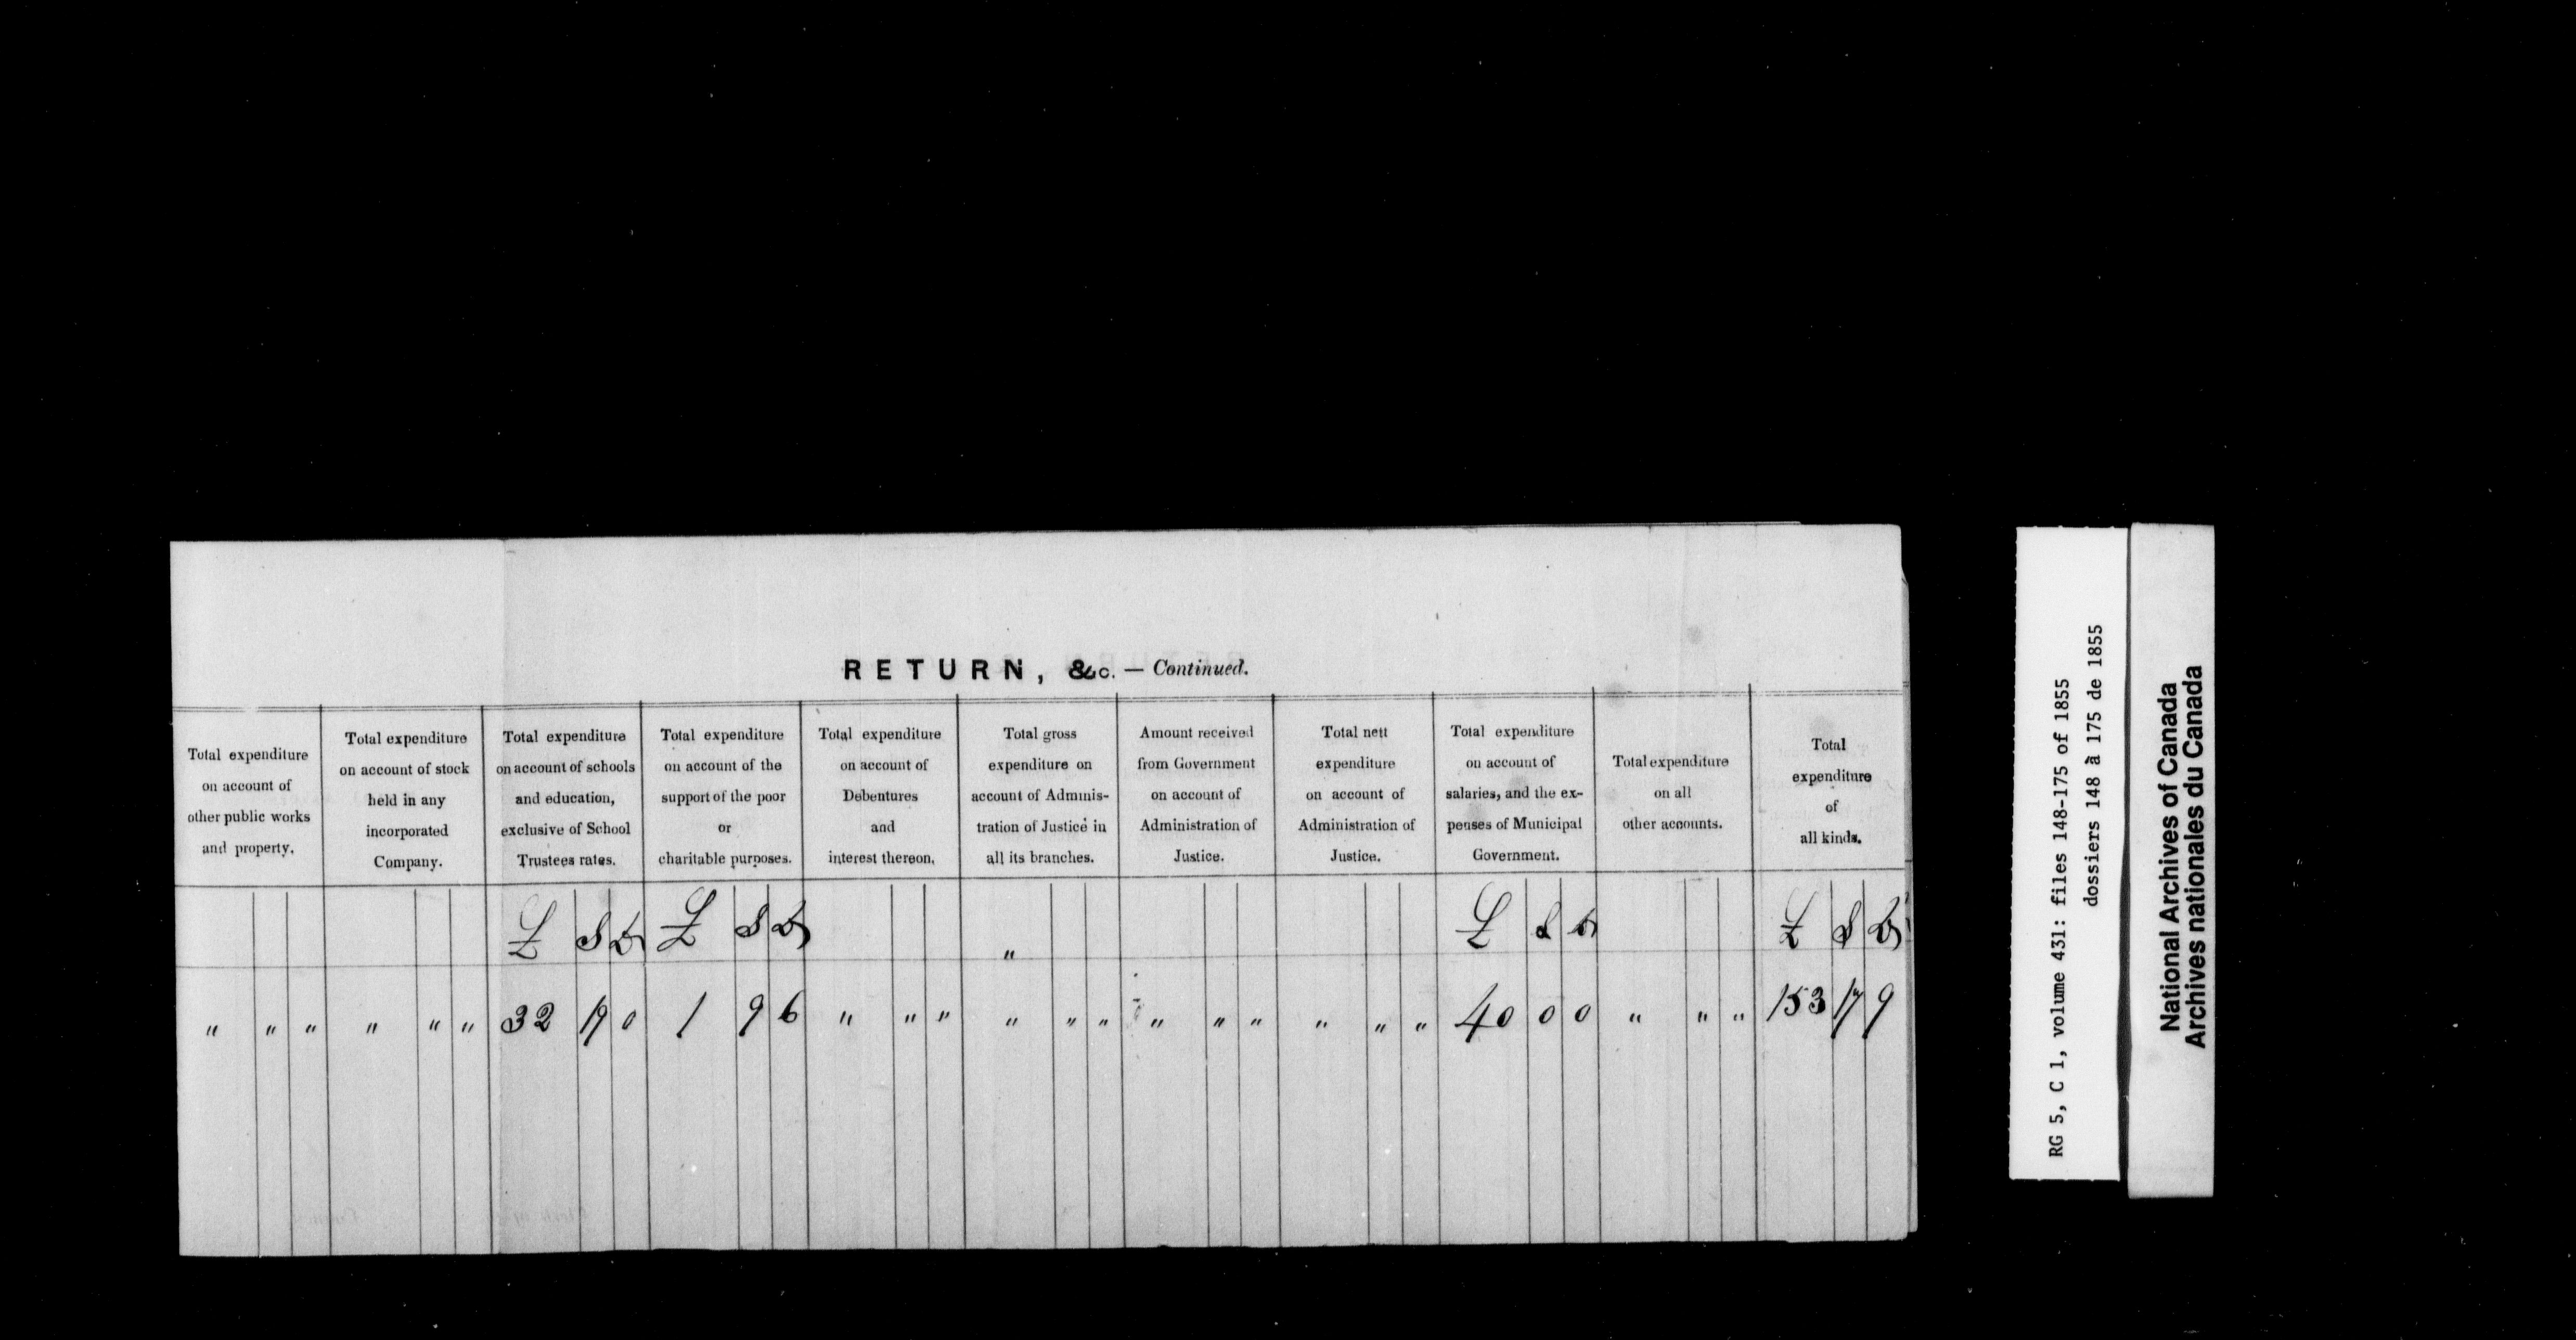 RETURN, &c. — Continued.
Total expenditure
on account of
other public works
and property.
Total expenditure
on account of stock
held in any
incorporated
Company.
Total expenditure
on account of schools
and education,
exclusive of School
Trustees rates.
Total expenditure
on account of the
support of the poor
or
charitable purposes.
Total expenditure
on account of
Debentures
and
interest thereon.
Total gross
expenditure on
account of Adminis-
tration of Justice in
all its branches.
Amount received
from Government
on account of
Administration of
Justice.
Total nett
expenditure
on account of
Administration of
Justice.
Total expenditure
on account of
salaries, and the ex-
penses of Municipal
Government.
Total expenditure
on all
other accounts.
Total
expenditure
of
all kinds.
£ S D £ S D " £ S D £ S D
" " " " " " 32 19 0 1 9 6 " " " " " " " " " " " " 40 0 0 " " " 153 17 9
RG 5, C 1, volume 431: files 148-175 of 1855
dossiers 148 à 175 de 1855
National Archives of Canada
Archives nationales du Canada